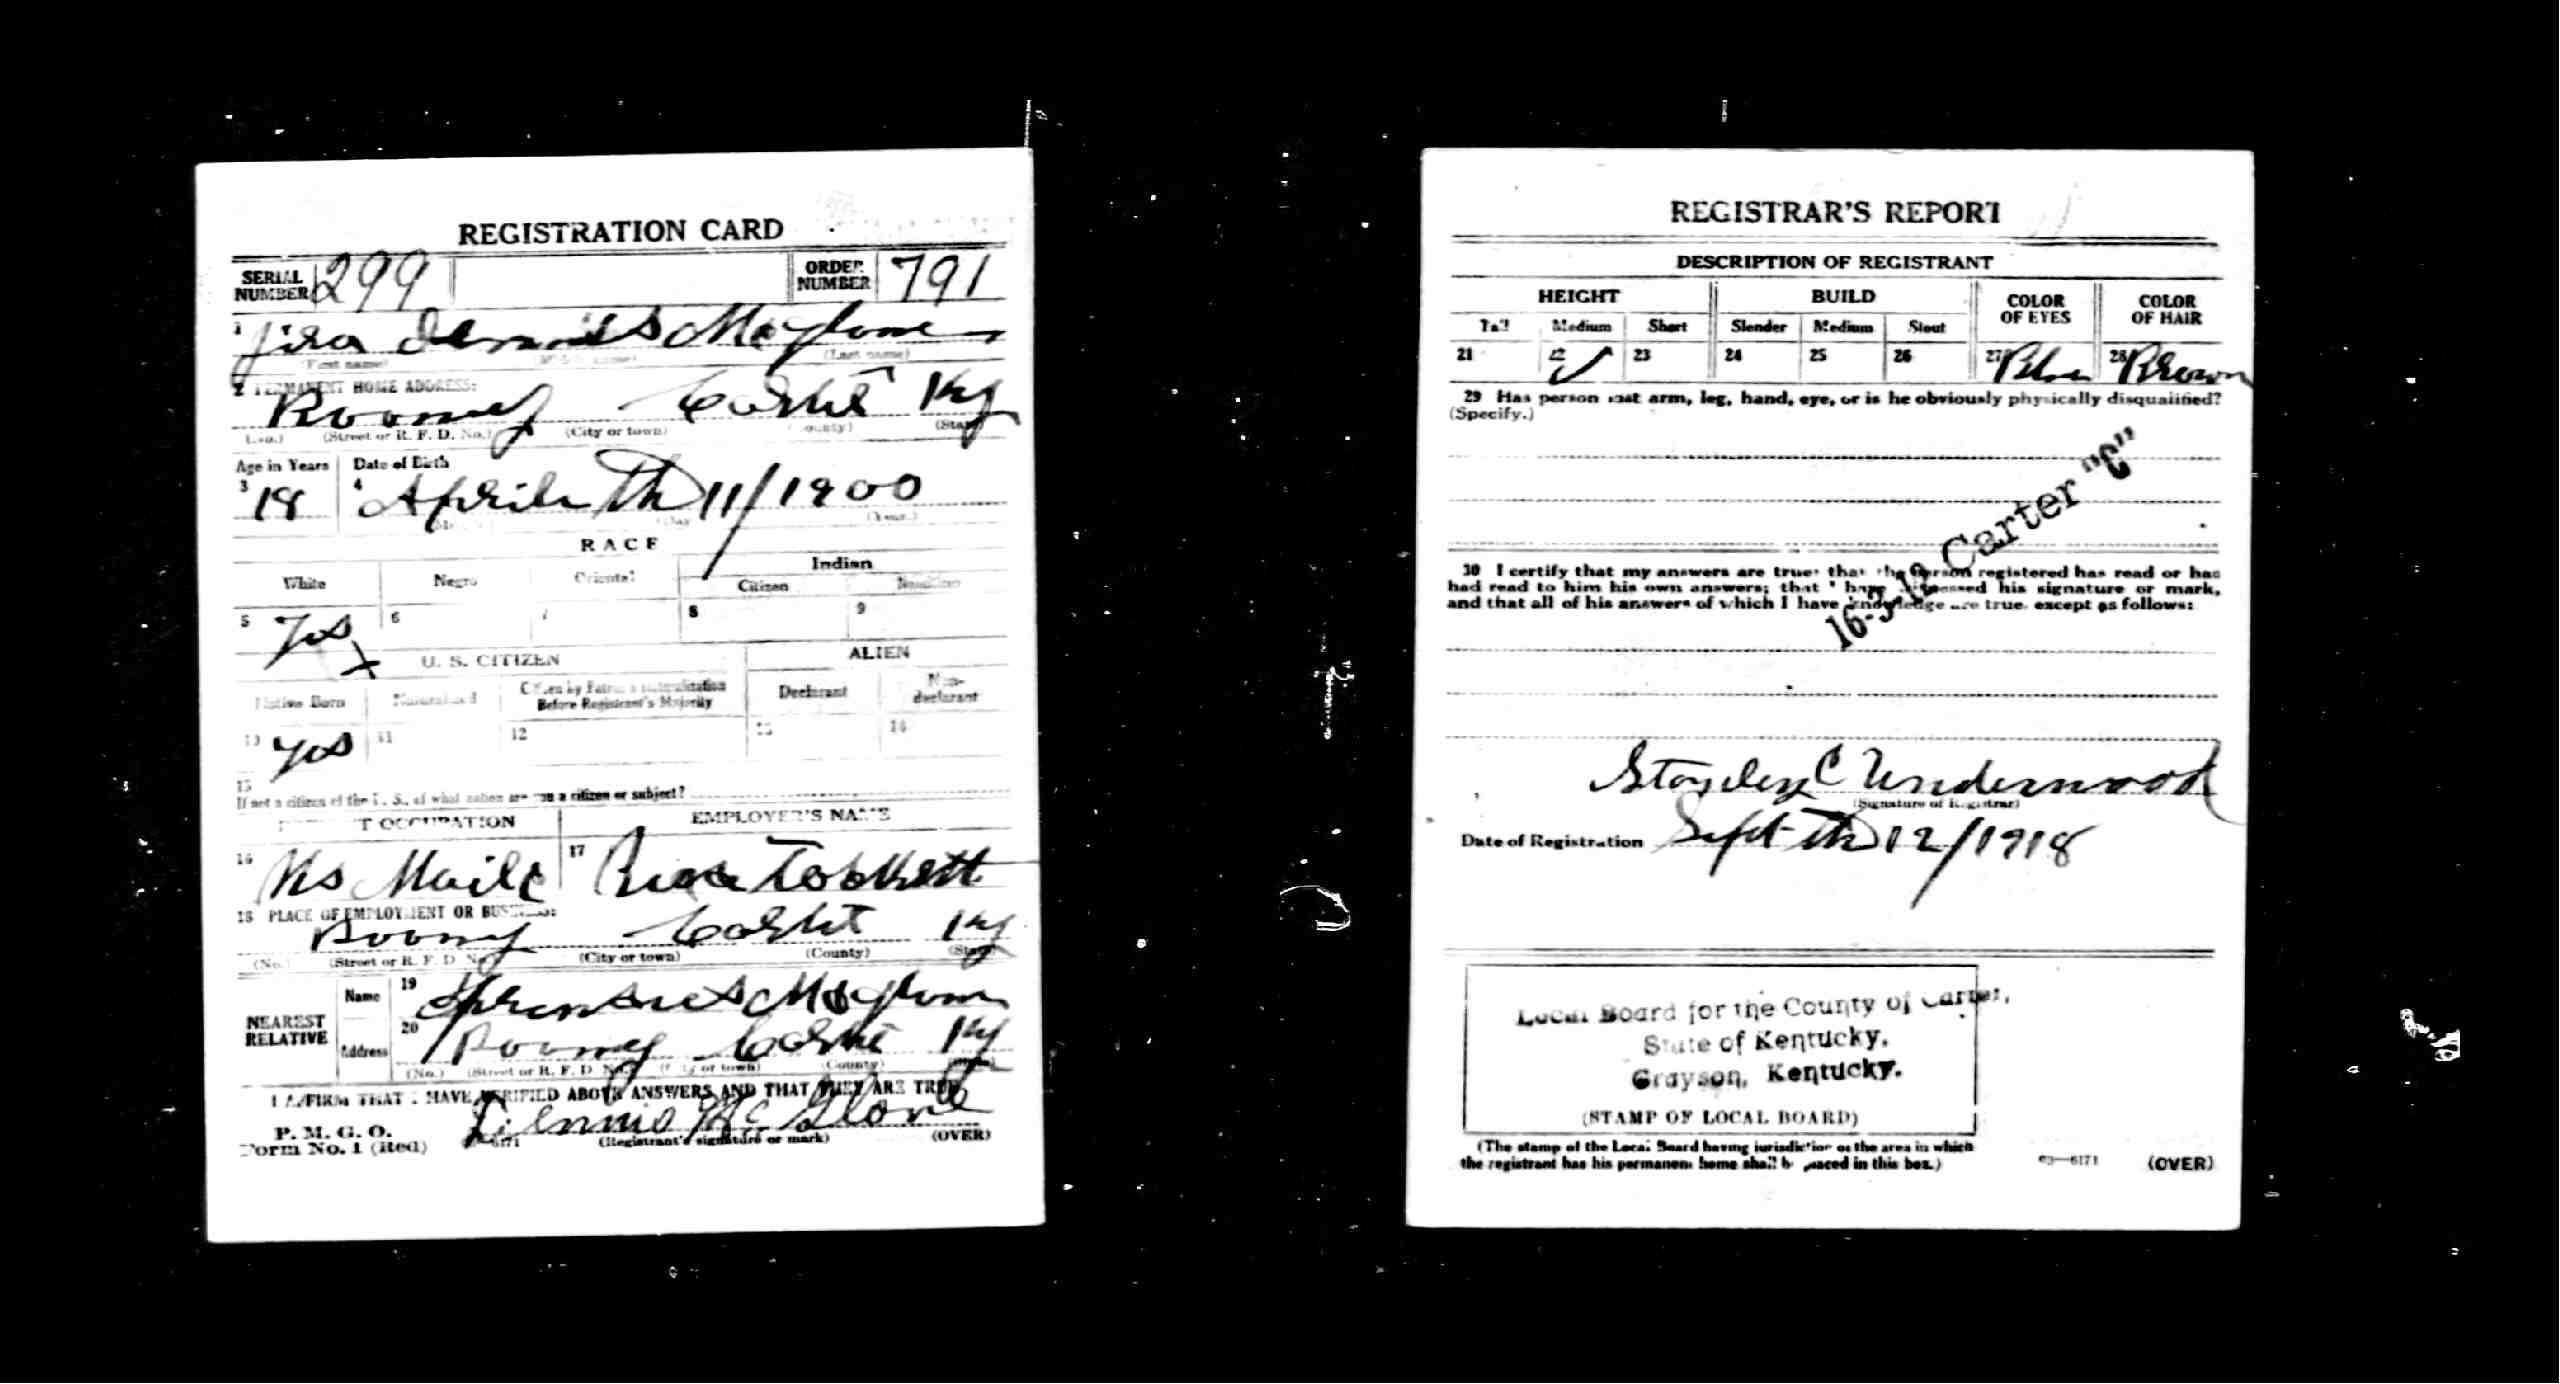 REGISTRATION CARD
SERIAL NUMBER 299 ORDER NUMBER 791
1 Dennis McGlone
(First name) (Last name)
2 PERMANENT HOME ADDRESS:
Roony Carter Ky
(No.) (Street or R. F. D. No.) (City or town) (County) (State)
Age in Years Date of Birth
3 18 4 April th 11/1900
(Day) (Year)
RACE
White Negro Oriental Indian
Citizen Noncitizen
5 Yes 6 7 8 9
X U. S. CITIZEN ALIEN
Native Born Naturalized Citizen by Father's Naturalization Before Registrant's Majority Declarant Non-declarant
10 Yes 11 12 13 14
15
If not a citizen of the U. S., of what nation are you a citizen or subject?
PRESENT OCCUPATION EMPLOYER'S NAME
16 17
18 PLACE OF EMPLOYMENT OR BUSINESS:
Roony Carter Ky
(No.) (Street or R. F. D. No.) (City or town) (County) (State)
NEAREST RELATIVE
Name 19 McGlone
Address 20 Roony Carter Ky
(No.) (Street or R. F. D. No.) (City or town) (County) (State)
I AFFIRM THAT I HAVE VERIFIED ABOVE ANSWERS AND THAT THEY ARE TRUE
P. M. G. O.
Form No. 1 (Red) Dennis McGlone
(Registrant's signature or mark) (OVER)
REGISTRAR'S REPORT
DESCRIPTION OF REGISTRANT
HEIGHT BUILD COLOR OF EYES COLOR OF HAIR
Tall Medium Short Slender Medium Stout
21 22 ✓ 23 24 25 26 27 Blue 28 Brown
29 Has person lost arm, leg, hand, eye, or is he obviously physically disqualified?
(Specify.)
16-3-12 Carter "C"
30 I certify that my answers are true; that the person registered has read or has
had read to him his own answers; that I have witnessed his signature or mark,
and that all of his answers of which I have knowledge are true, except as follows:
Stanley C Underwood
(Signature of Registrar)
Date of Registration Sept th 12/1918
Local Board for the County of Carter,
State of Kentucky,
Grayson, Kentucky.
(STAMP OF LOCAL BOARD)
(The stamp of the Local Board having jurisdiction of the area in which
the registrant has his permanent home shall be placed in this box.)
03—6171 (OVER)